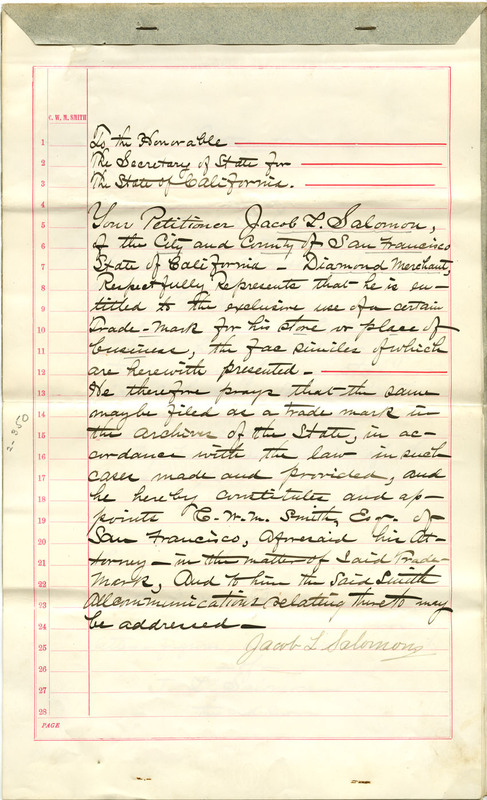 C. W. M. SMITH
1 To the Honorable
2 The Secretary of State for
3 The State of California.
4
5 Your Petitioner Jacob L. Salomon,
6 of the City and County of San Francisco
7 State of California - Diamond Merchant,
8 Respectfully Represents that he is en-
9 titled to the exclusive use of a certain
10 Trade-Mark for his store or place of
11 business, the fac similes of which
12 are herewith presented.
13 He therefore prays that the same
14 may be filed as a trade mark in
15 the archives of the State, in ac-
16 cordance with the law in such
17 cases made and provided, and
18 he hereby constitutes and ap-
19 points C. W. M. Smith, Esq. of
20 San Francisco, Aforesaid his At-
21 torney - in the matter of Said Trade-
22 Mark, And to him the Said Smith
23 All communications relating thereto may
24 be addressed -
25 Jacob L Salomons
26
27
28
PAGE
2-350